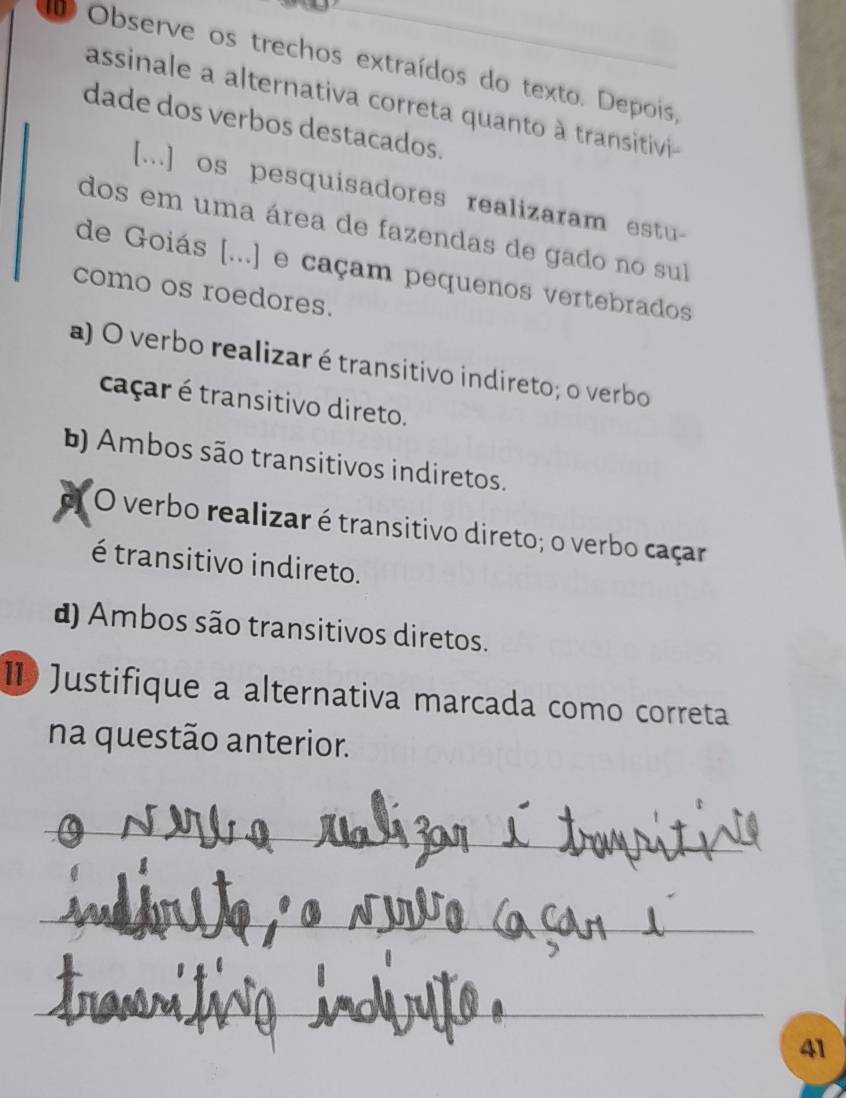 10 Observe os trechos extraídos do texto. Depois,
assinale a alternativa correta quanto à transitivi-
dade dos verbos destacados.
[...] os pesquisadores realizaram estu-
dos em uma área de fazendas de gado no sul
de Goiás [...] e caçam pequenos vertebrados
como os roedores.
a) O verbo realizar é transitivo indireto; o verbo
caçar é transitivo direto.
b) Ambos são transitivos indiretos.
c) O verbo realizar é transitivo direto; o verbo caçar
é transitivo indireto.
d) Ambos são transitivos diretos.
11 Justifique a alternativa marcada como correta
na questão anterior.
o verbo realizar é transitivo
indireto; o verbo caçar é
transitivo indireto.
41